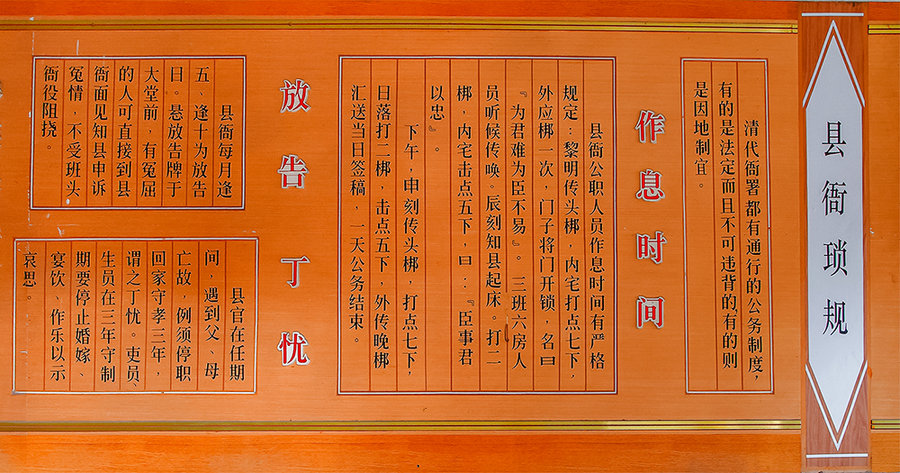 县衙琐规
清代衙署都有通行的公务制度，
有的是法定而且不可违背的，有的则
是因地制宜。
作息时间
县衙公职人员作息时间有严格
规定：黎明传头梆，内宅打点七下，
外应梆一次，门子将门开锁，名曰
『为君难为臣不易』。三班六房人
员听候传唤。辰刻知县起床。打二
梆，内宅击点五下，曰：『臣事君
以忠』。
下午，申刻传头梆，打点七下，
日落打二梆，击点五下，外传晚梆
汇送当日签稿，一天公务结束。
放告
县衙每月逢
五、逢十为放告
日。悬放告牌于
大堂前，有冤屈
的人可直接到县
衙面见知县申诉
冤情，不受班头
衙役阻挠。
丁忧
县官在任期
间，遇到父、母
亡故，例须停职
回家守孝三年，
谓之丁忧。吏员、
生员在三年守制
期要停止婚嫁、
宴饮、作乐以示
哀思。